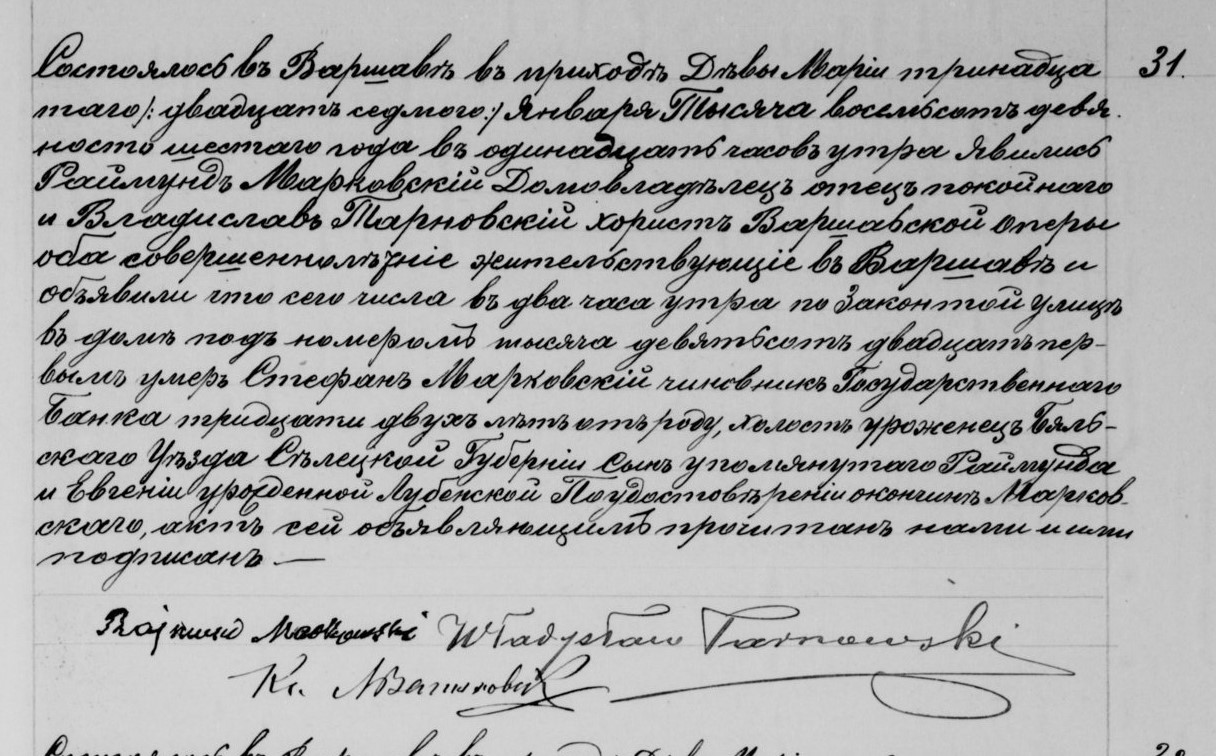 Состоялось въ Варшавѣ въ приходѣ Дѣвы Маріи тринадца 31.
таго /: двадцать седмого :/ Января Тысяча восемьсотъ девя
носто шестаго года въ одинадцать часовъ утра явились
Раймундъ Марковскій Домовладѣлецъ отецъ покойнаго
и Владиславъ Тарновскій хористъ Варшавской оперы
оба совершеннолѣтніе жительствующіе въ Варшавѣ и
объявили что сего числа въ два часа утра по Законтой улицѣ
въ домѣ подъ номеромъ тысяча девятьсотъ двадцать пер-
вымъ умеръ Стефанъ Марковскій чиновникъ Государственнаго
Банка тридцати двухъ лѣтъ отъ роду, холостъ уроженецъ Бяль-
скаго Уѣзда Сѣлецкой Губерніи сынъ упомянутаго Раймунда
и Евгеніи урожденной Лубенской По удостовѣреніи о кончинѣ Марков-
скаго, актъ сей объявляющимъ прочитанъ нами и ими
подписанъ —
Rajmund Markowski Władysław Tarnowski
Кс.